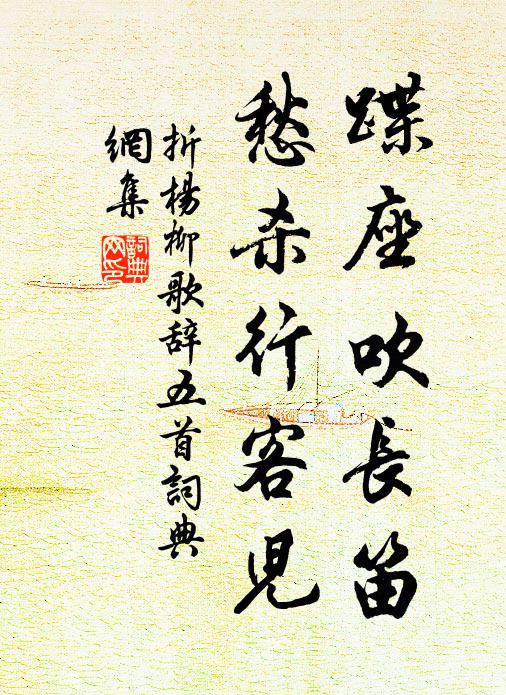 蹀座吹長笛
愁杀行客児
折楊柳歌辞五首詞典
網集
詞典
网印